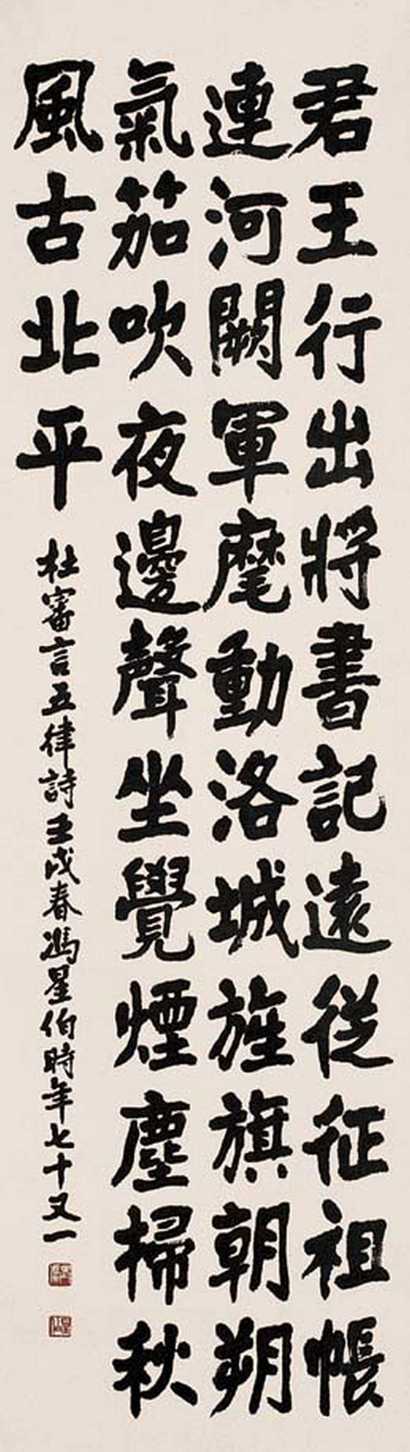 君王行出將書記遠從征祖帳
連河闕軍麾動洛城旌旗朝朔
氣笳吹夜邊聲坐覺煙塵掃秋
風古北平
杜審言五律詩壬戌春馮星伯時年七十又一